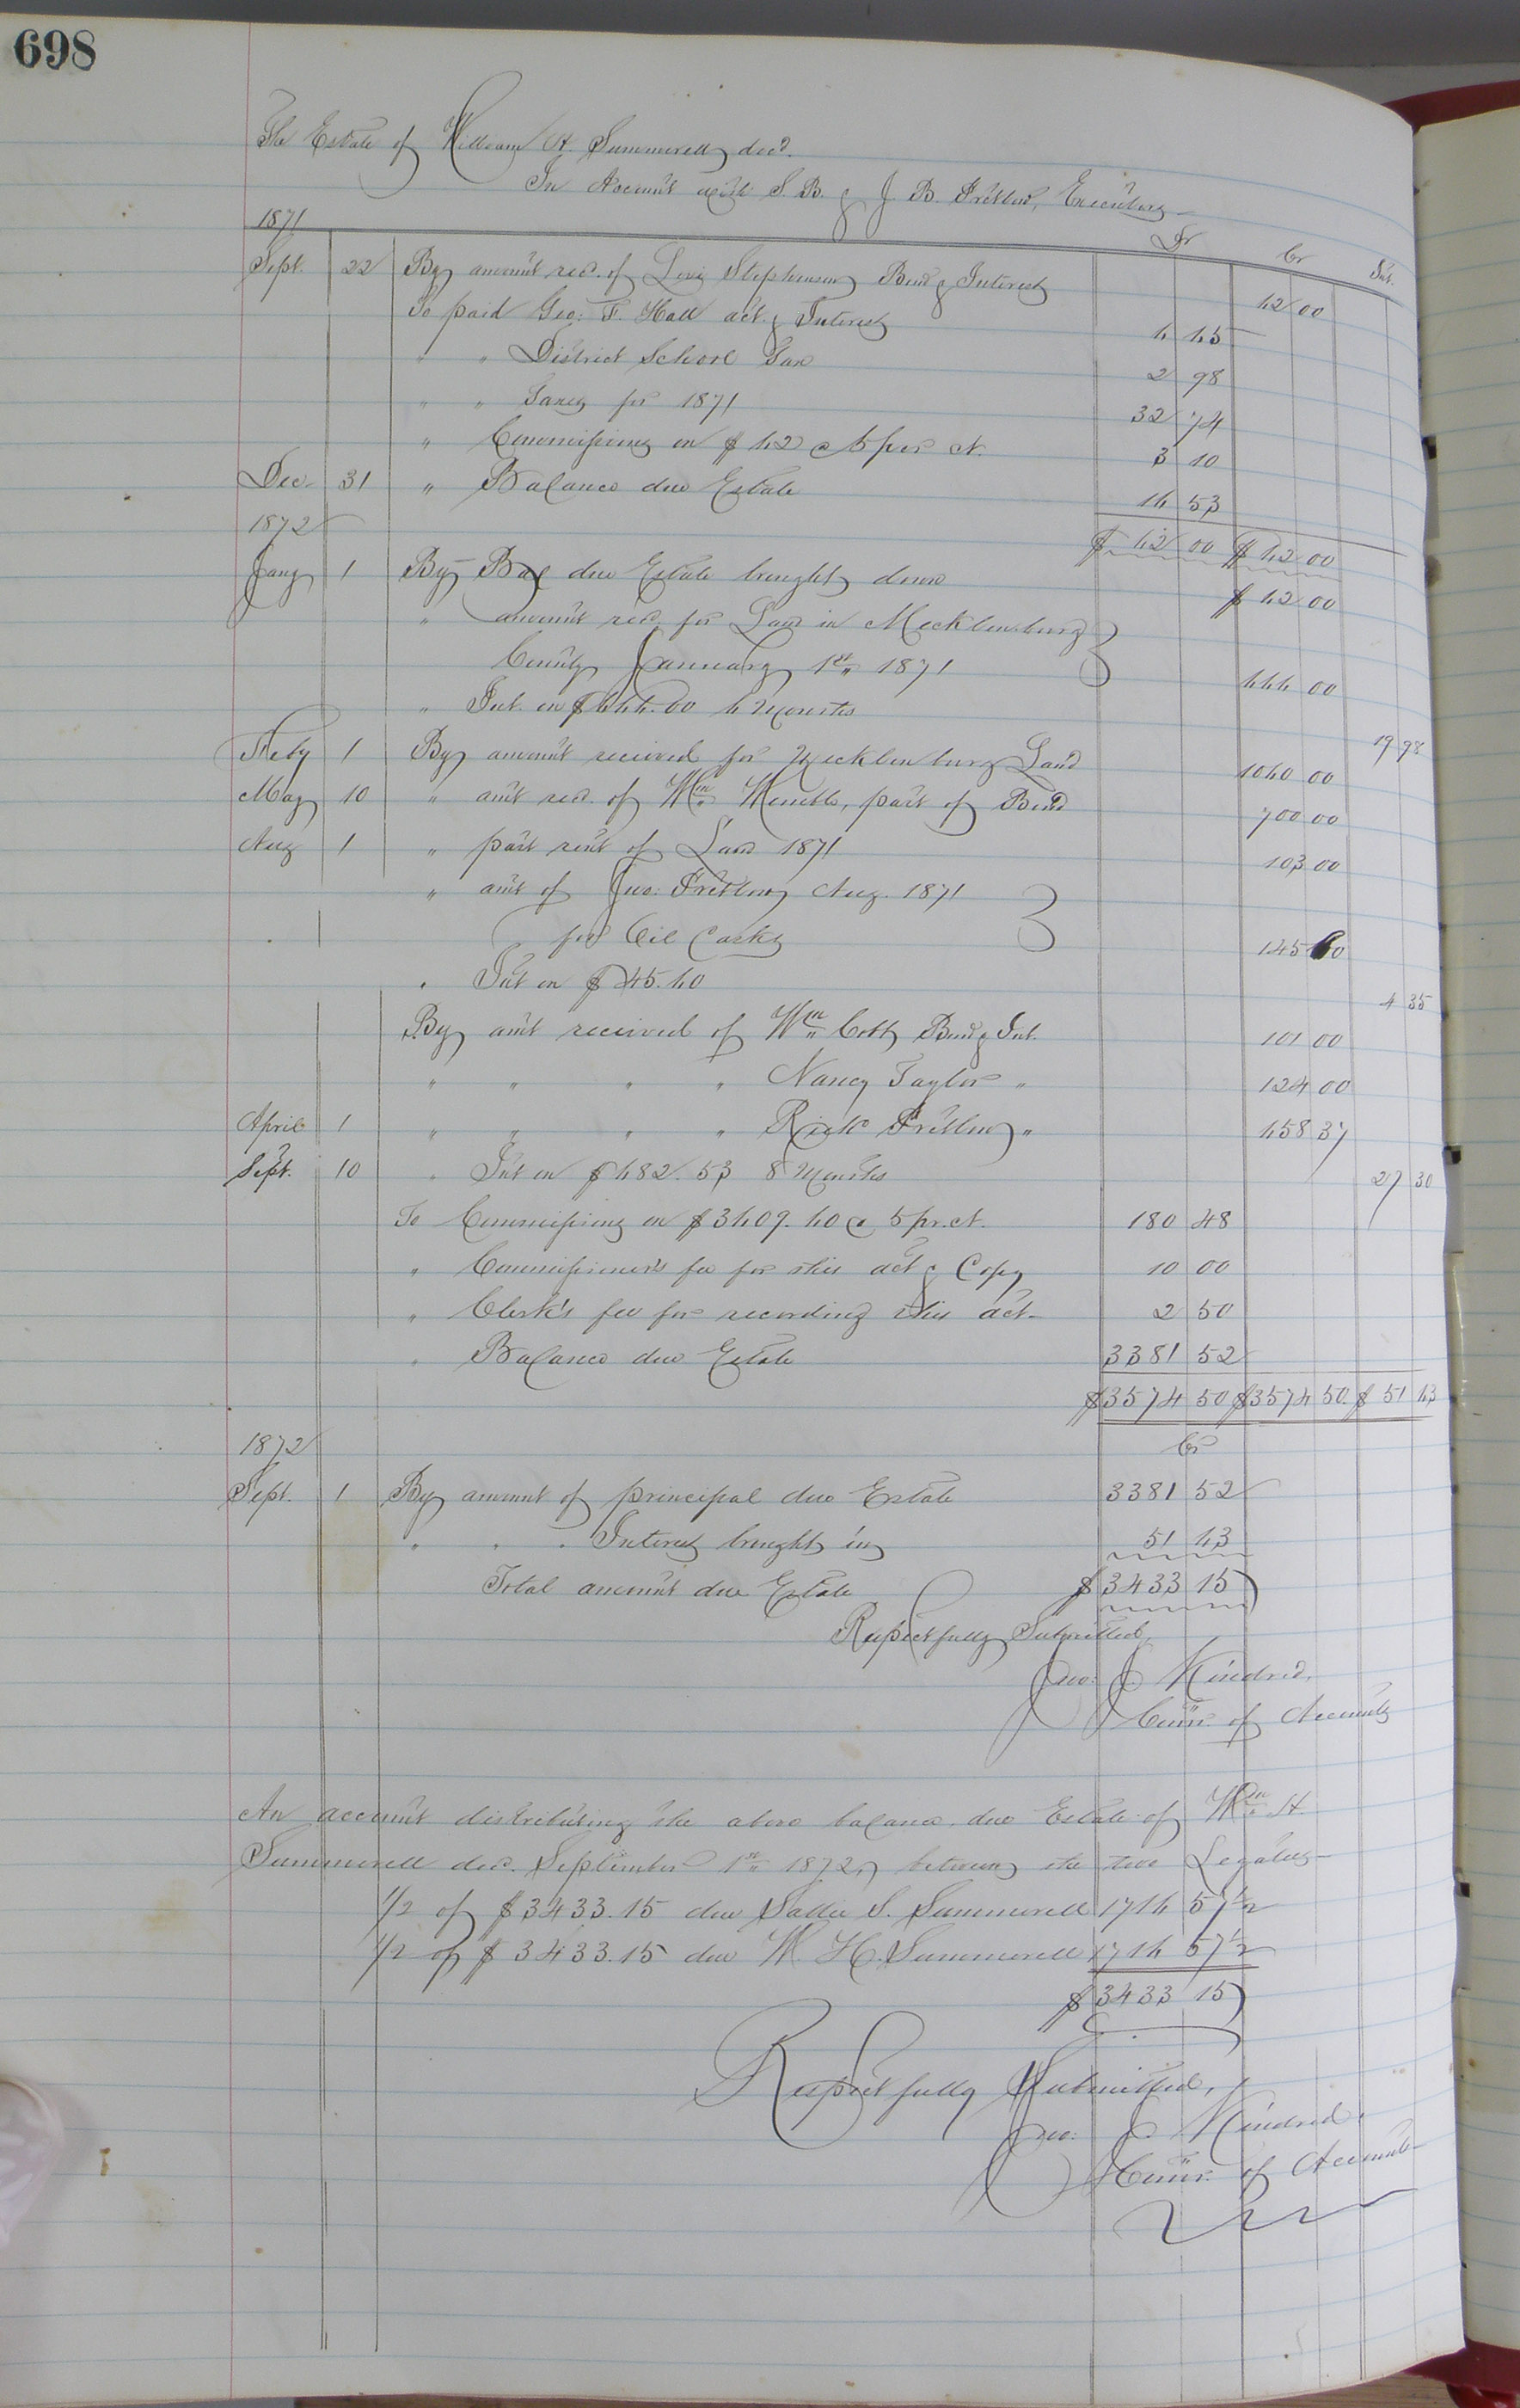 698
The Estate of William H. Summerell, decd.
In Account with S. B. & J. B. Pretlow, Executors
1871 Dr Cr Int.
Sept. 22 By amount recd. of Levi Stephenson Bond & Interest 62 00
To paid Geo: F. Hall act. & Interest 6 65
" " District School Tax 2 98
" " Taxes for 1871 32 74
" Commissions on $62 @ 5 per ct. 3 10
Dec 31 " Balance due Estate 16 53
$62 00 $62 00
1872
Jany 1 By Bal due Estate brought down $62 00
" amount recd. for Land in Mecklenburg
County January 1st 1871 666 00
" Int. on $666.00 6 Months 19 98
Feby 1 By amount received for Mecklenburg Land 1060 00
May 10 " amt recd. of Wm Womble, part of Bond 700 00
Aug 1 " part rent of Land 1871 103 00
" amt of Jno: Pretlow Aug. 1871
for Oil Casks 145 60
" Int on $145.60 4 35
By amt received of Wm Cobb Bond & Int. 101 00
" " " " Nancy Taylor " 124 00
April 1 " " " " Rich Pretlow " 658 37
Sept. 10 " Int on $682.53 8 Months 27 30
To Commissions on $3609.60 @ 5 pr. ct. 180 48
" Commissioner's fee for this act & Copy 10 00
" Clerk's fee for recording this act 2 50
" Balance due Estate 3381 52
$3574 50 $3574 50 $51 63
1872 Cr
Sept. 1 By amount of principal due Estate 3381 52
" " " Interest brought in 51 63
Total amount due Estate $3433 15
Respectfully Submitted,
Jno: J. Kindred,
Comr. of Accounts
An account distributing the above balance due Estate of Wm H.
Summerell decd. September 1st 1872, between the two Legatees
1/2 of $3433.15 due Sallie S. Summerell 1716 57 1/2
1/2 of $3433.15 due W. H. Summerell 1716 57 1/2
$3433 15
Respectfully Submitted,
Jno: J. Kindred,
Comr. of Accounts